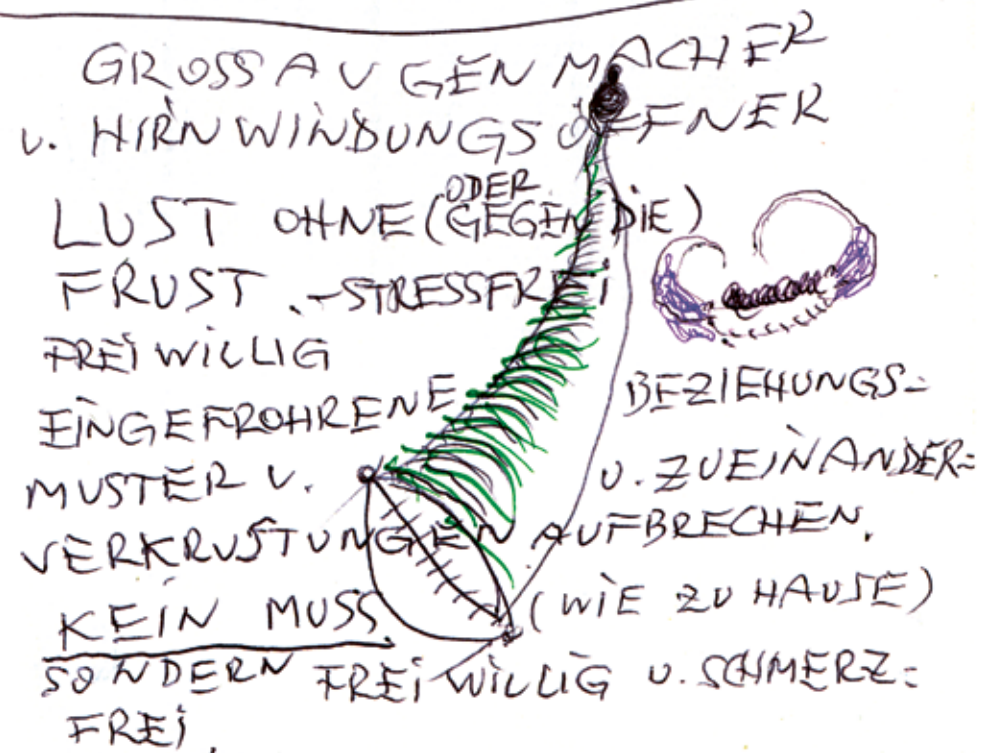 GROSSAUGENMACHER
u. HIRNWINDUNGSÖFFNER
LUST OHNE (ODER GEGEN DIE)
FRUST. - STRESSFREI
FREIWILLIG
EINGEFROHRENE BEZIEHUNGS=
MUSTER U. U. ZUEINANDER=
VERKRUSTUNGEN AUFBRECHEN.
KEIN MUSS (WIE ZU HAUSE)
SONDERN FREIWILLIG U. SCHMERZ=
FREI.